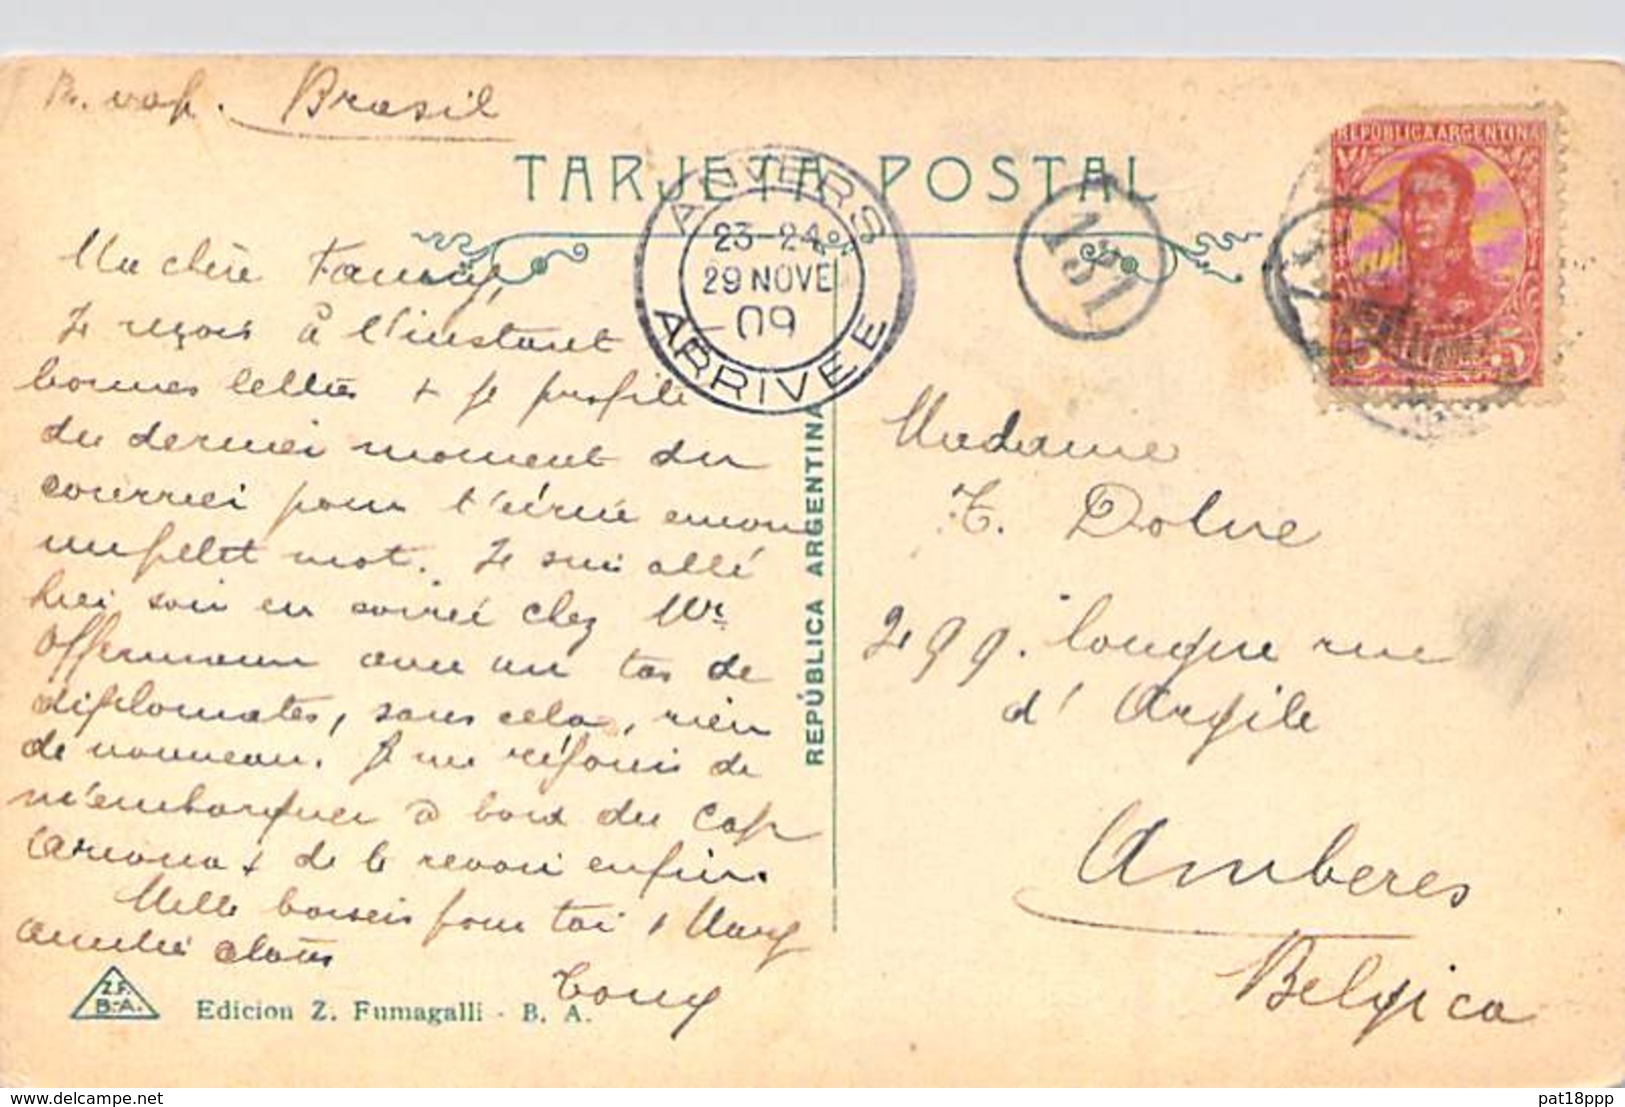 P. vap. Brasil
TARJETA POSTAL
ANVERS
23-24
29 NOVE
09
ARRIVEE
131
REPÚBLICA ARGENTINA
5 5
Ma chère Fanny,
Je reçois à l'instant
bonnes lettres + je profite
du dernier moment du
courrier pour t'écrire encore
un petit mot. Je suis allé
hier soir en soirée chez Mr
Offermann avec un tas de
diplomates, sans cela, rien
de nouveau. Je me réjouis de
m'embarquer à bord du Cap
Arcona + de te revoir enfin.
Mille baisers pour toi
Tony
REPÚBLICA ARGENTINA
Madame
T. Dolne
299. longue rue
d'Argile
Amberes
Belgica
Z.F.
B.-A.
Edicion Z. Fumagalli - B. A.
delcampe.net
pat18ppp